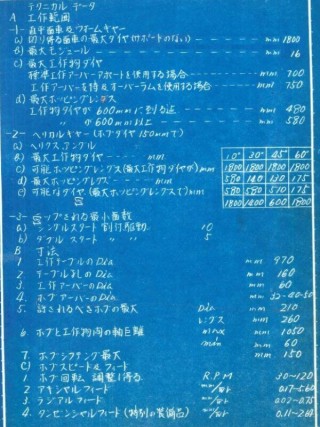 テクニカル データ
A 工作範囲
-1- 直平歯車及ウォームギヤー
a) 切り得る歯車の最大ダイヤ(サポートのない) --- mm 1800
b) 最大モジュール --- mm 16
c) 最大工作物ダイヤ
標準工作アーバーアポートを使用する場合 --- mm 700
工作アーバーを持つオーバーラムを使用する場合 --- mm 750
d) 最大ホッビングレングス
工作物ダイヤが 600mmに到る迄 --- mm 480
〃 が600mm以上 --- mm 580
-2- ヘリカルギヤー (ホブダイヤ150mmで)
a) ヘリクスアングル 10° 30° 45° 60°
b) 最大工作物ダイヤ --- mm 1800 1800 1800 1800
c) 可能ホッビングレングス(最大工作物ダイヤが) mm 580
d) 最大ホッビングレングス --- mm 580 580 510 175
e) 可能ダイヤ(最大ホッビングレングスで) mm 1800 600 1800
-3- される最小歯数
a) シングルスタート 割付駆動 10
b) ダブル スタート 〃 〃 5
B 寸法
1. 工作テーブルのDia mm 970
2. テーブル孔のDia mm 160
3. 工作アーバーのDia mm 60
4. ホブアーバーのDia mm
5. 許されるべきホブの最大 Dia mm 210
レングス mm 260
6. ホブと工作物間の軸距離 max mm 1050
min mm 60
7. ホブシフチング最大 mm 150
C) ホブスピード & フィード
1 ホブ回転 調整し得る R.P.M 30-120
2 アキシャルフィード
3. ラジアルフィード
4. タンゼンシャルフィード (特別の装備品)